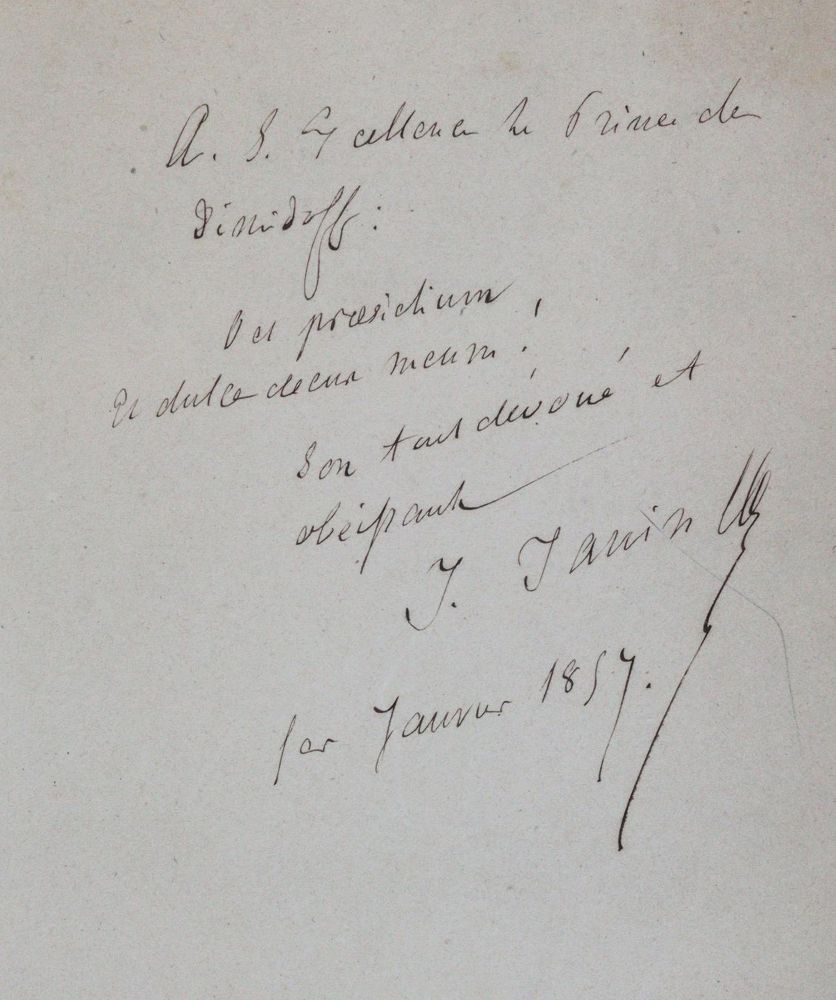 A. S. Excellence le Prince de
Dimidoff :
O et præsidium
Et dulce decus meum !
Son tout dévoué et
obéissant
J. Janin
1er Janvier 1857.